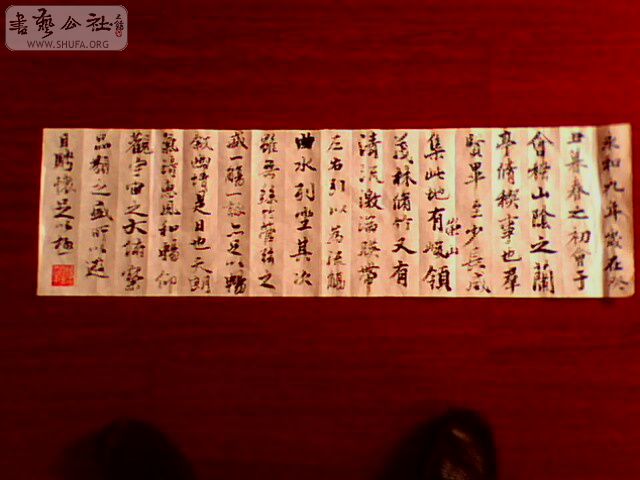 書藝公社
WWW.SHUFA.ORG
永和九年歲在癸
丑暮春之初會于
會稽山陰之蘭
亭脩稧事也羣
賢畢至少長咸
集此地有崇山峻領
茂林脩竹又有
清流激湍映帶
左右引以為流觴
曲水列坐其次
雖無絲竹管弦之
盛一觴一詠亦足以暢
敘幽情是日也天朗
氣清惠風和暢仰
觀宇宙之大俯察
品類之盛所以遊
目騁懷足以極